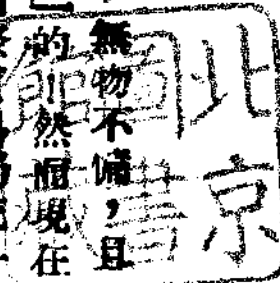 無物不備，且
的！然而現在
北京
圖書
館藏